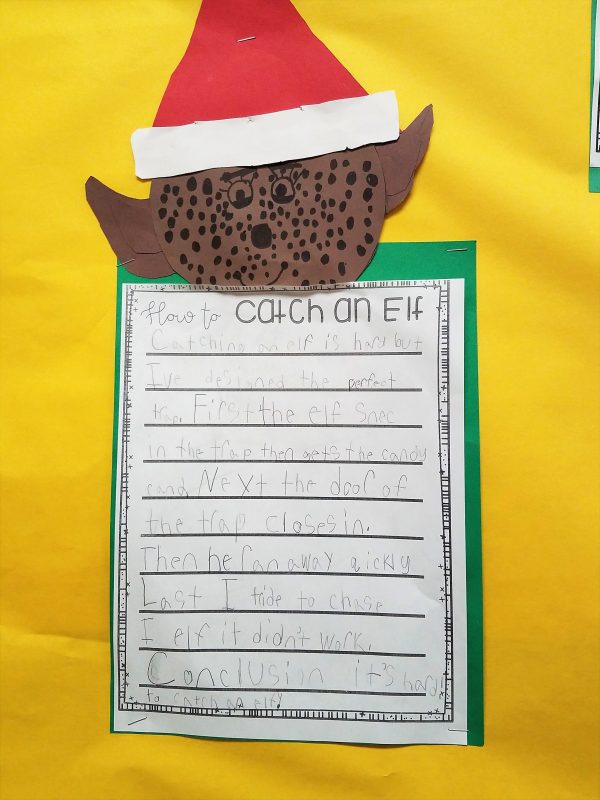 How to Catch an Elf
Catching an elf is hard but
I've designed the perfect
trap. First the elf snec
in the trap then gets the candy
cand Next the door of
the trap closes in.
Then he ran away qickly
Last I tride to chase
I elf it didn't work.
Conclusion it's hard
to catch an elf!